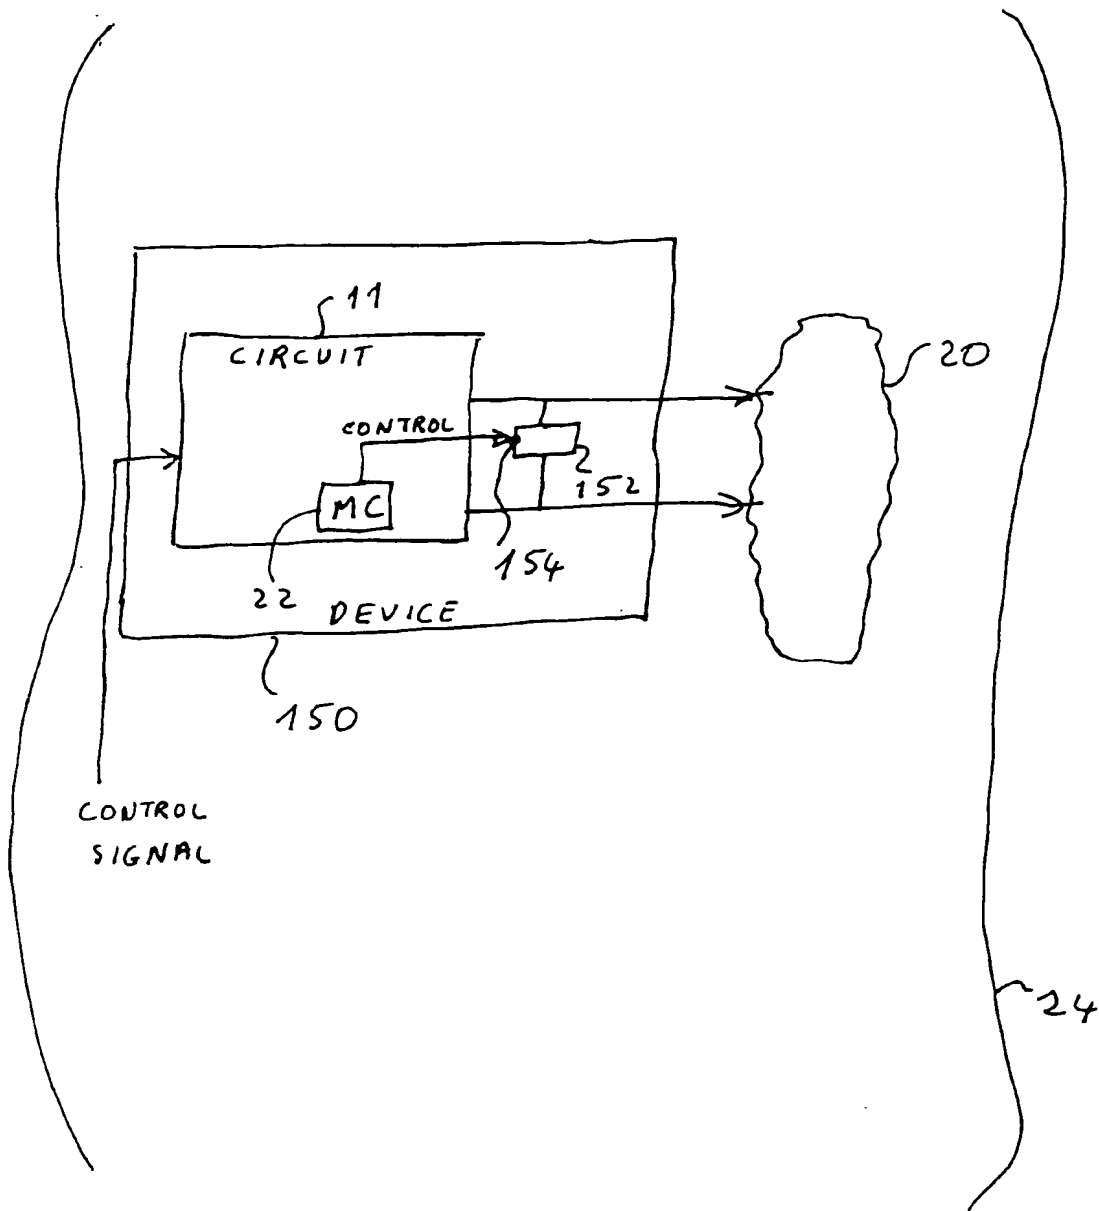 11
CIRCUIT
20
CONTROL
152
MC
154
22
DEVICE
150
CONTROL
SIGNAL
24